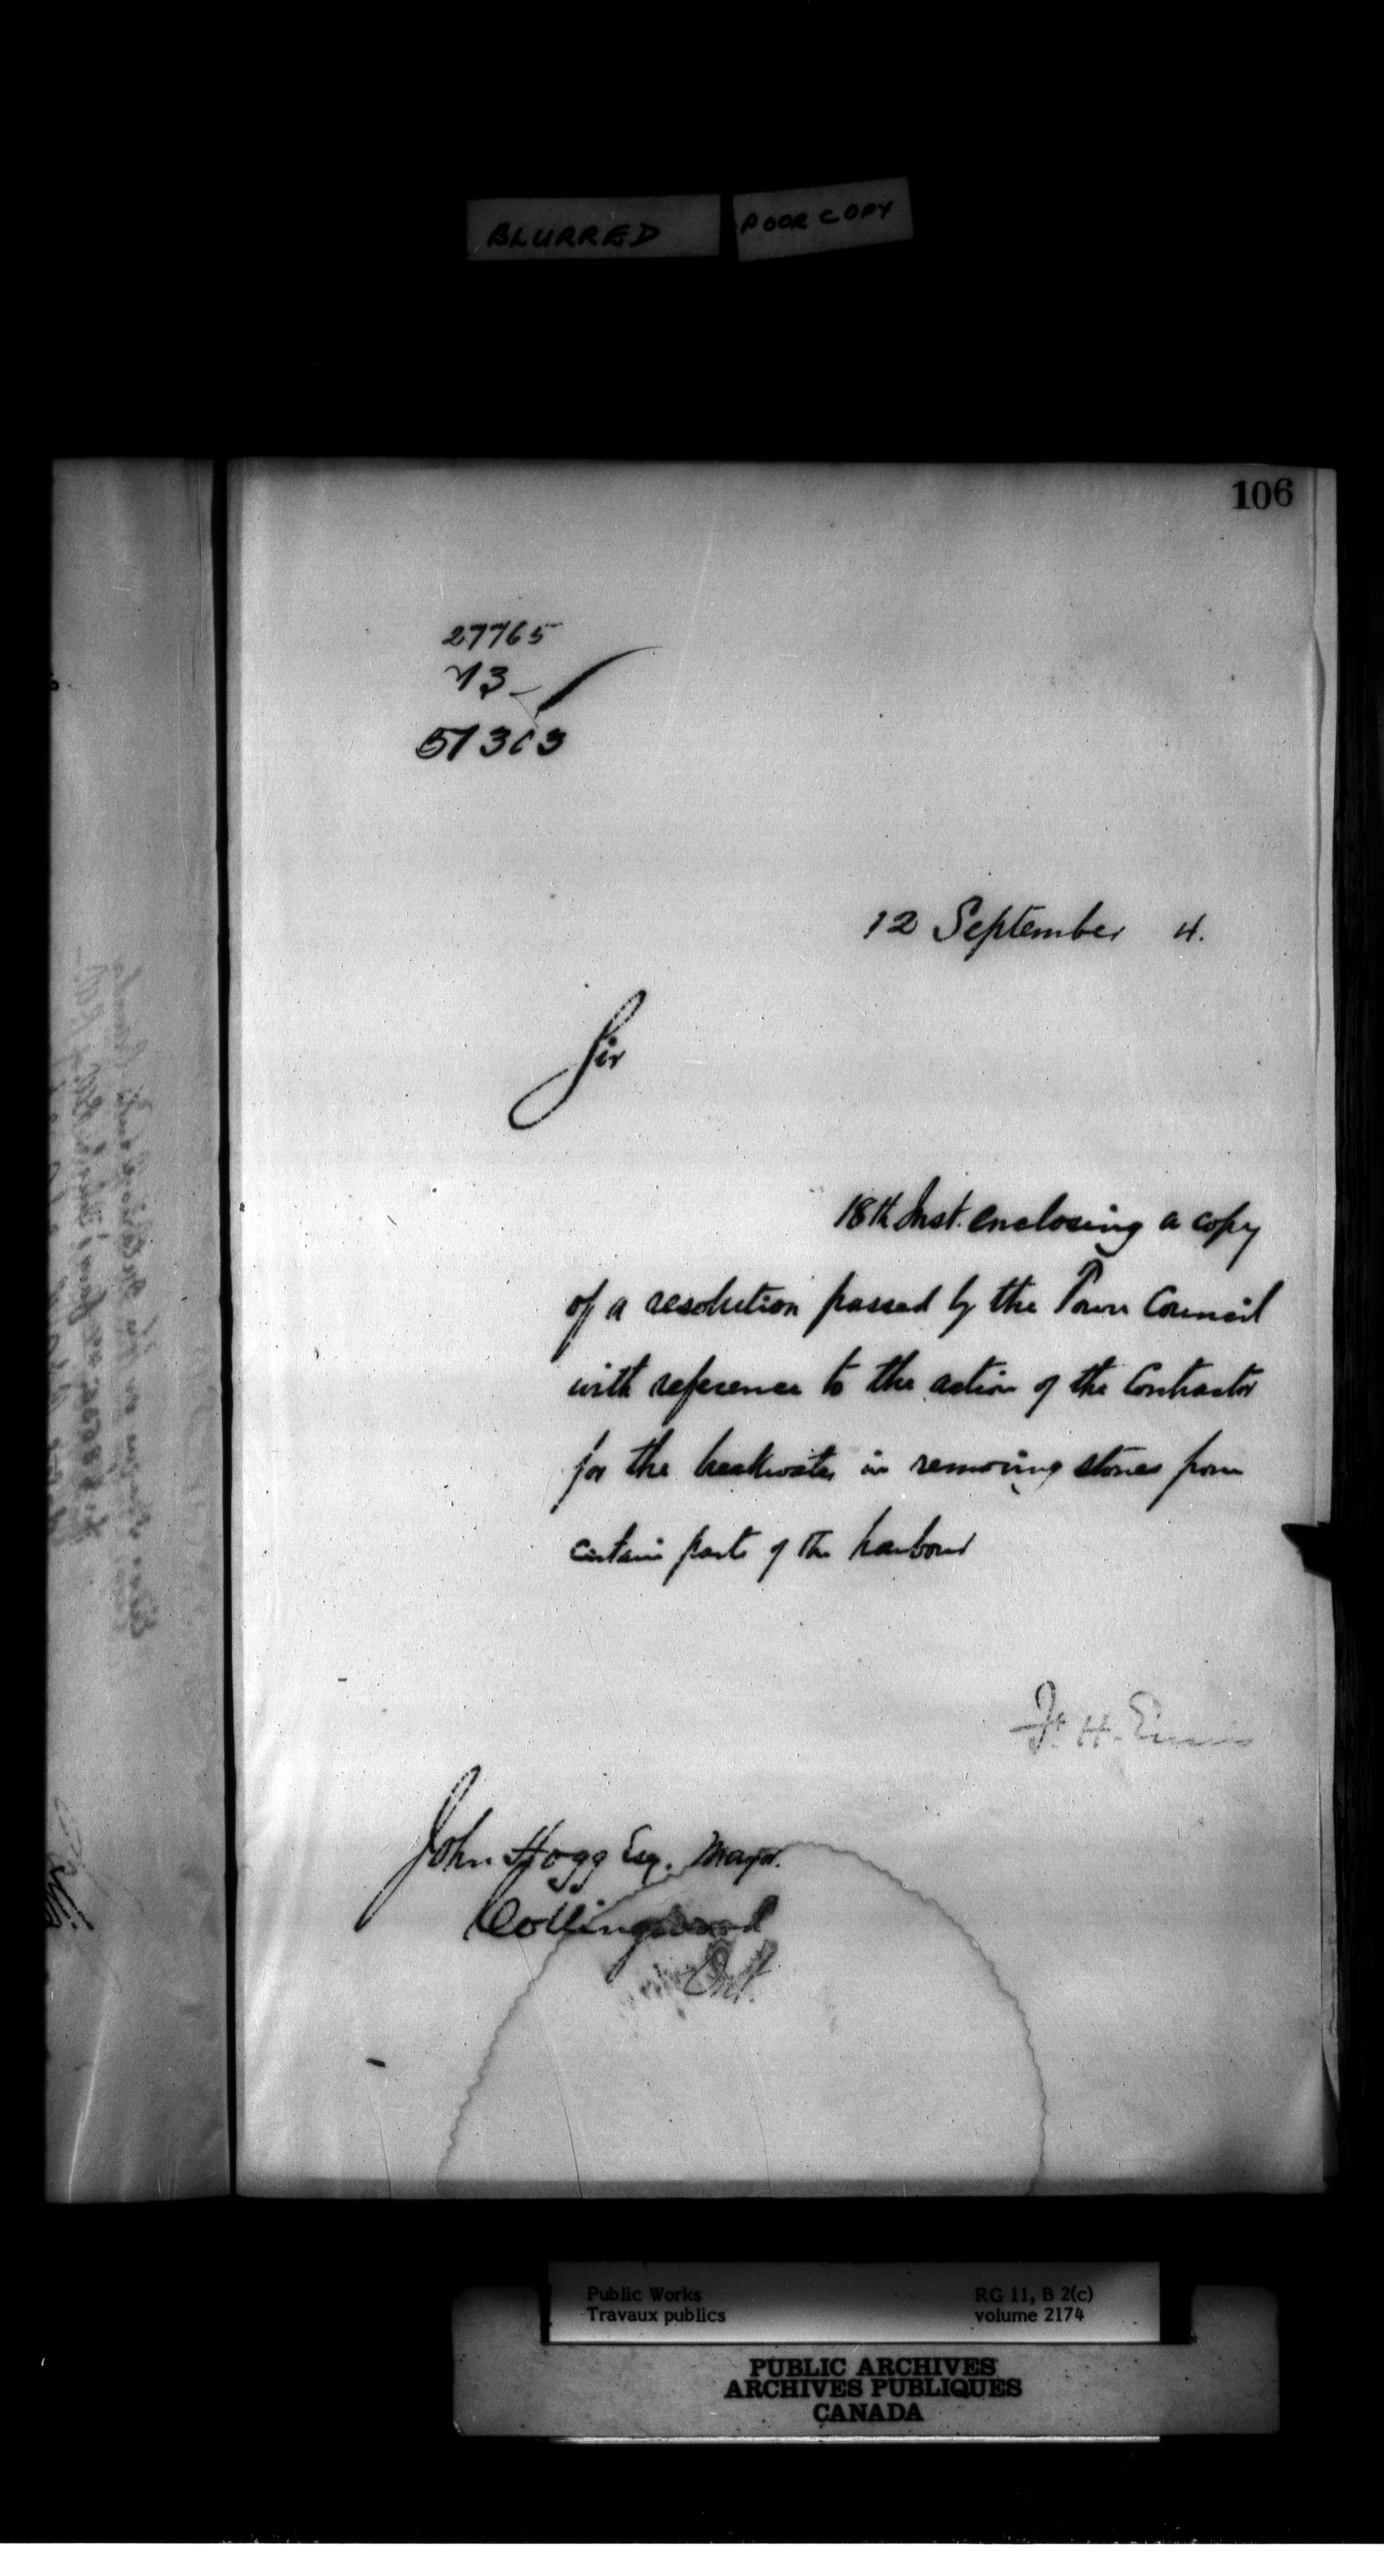 BLURRED POOR COPY
106
27765
13
51303
12 September 4.
Sir
18th Inst. enclosing a copy
of a resolution passed by the Town Council
with reference to the action of the Contractor
for the breakwater in removing stones from
certain parts of the harbour
F. H. Ennis
John Hogg Esq. Mayor.
Collingwood
Ont.
Public Works RG 11, B 2(c)
Travaux publics volume 2174
PUBLIC ARCHIVES
ARCHIVES PUBLIQUES
CANADA